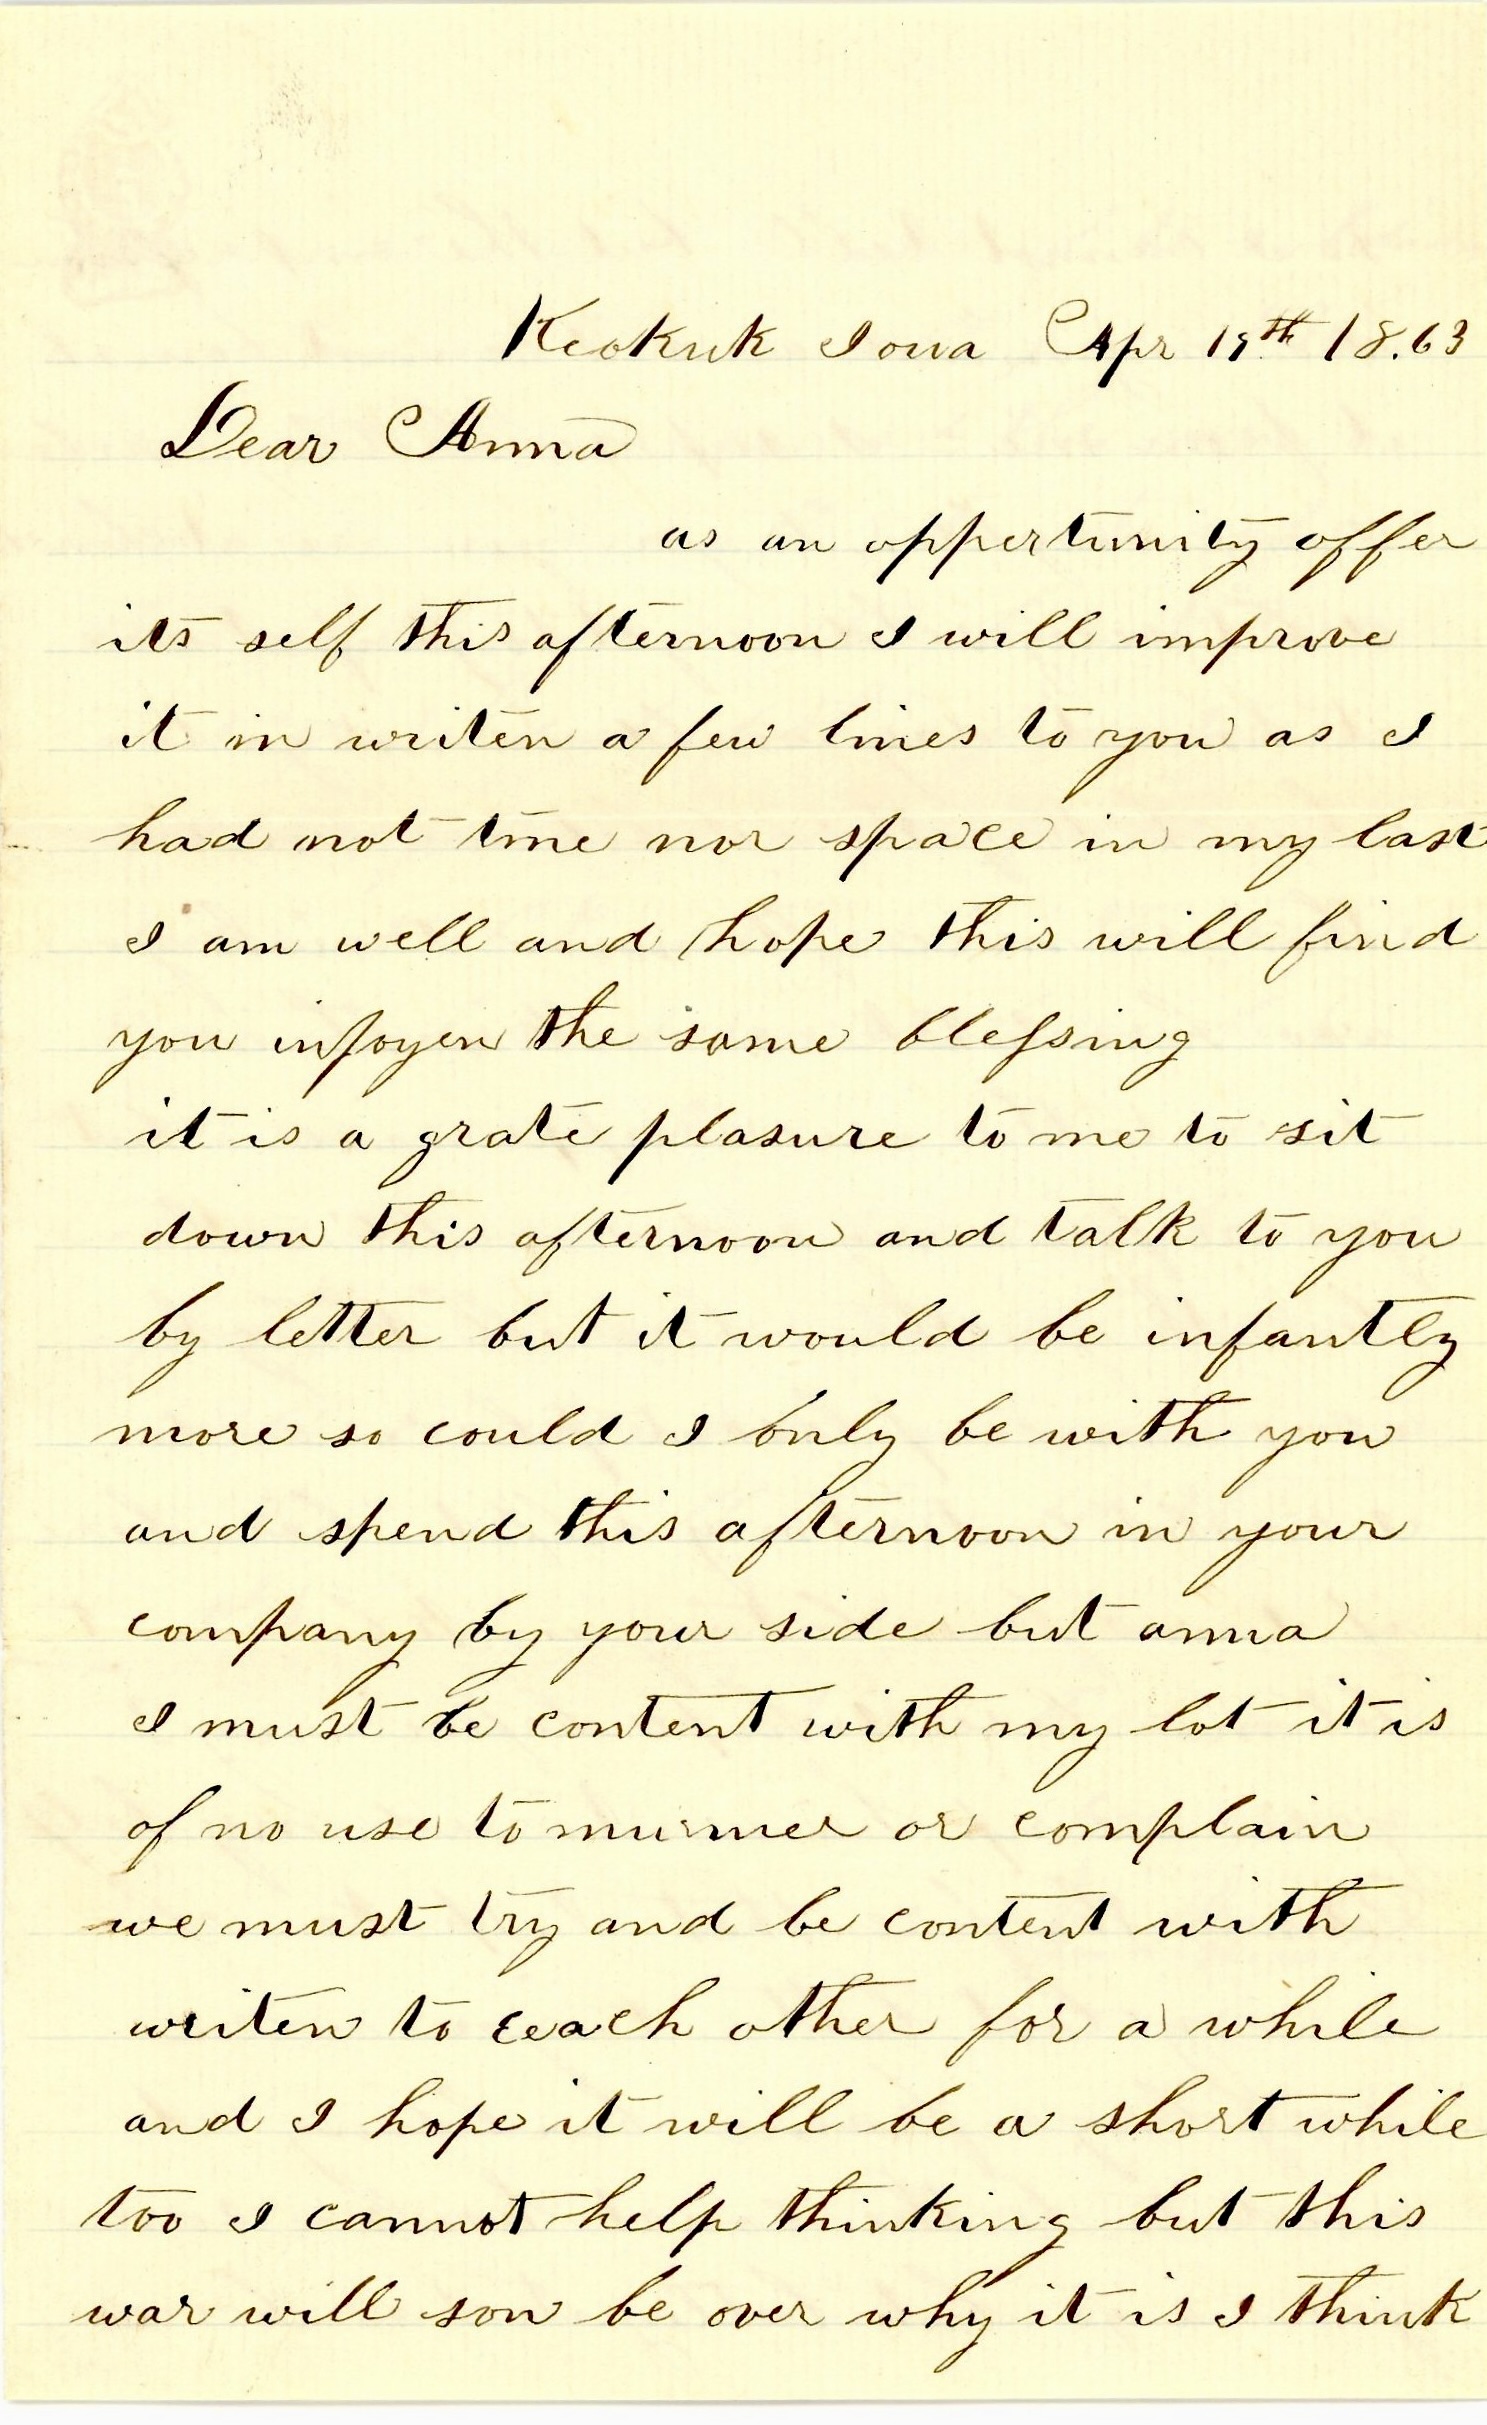 Keokuk Iowa Apr 19th 18.63
Dear Anna
as an oppertunity offer
its self this afternoon I will improve
it in writen a few lines to you as I
had not time nor space in my last
I am well and hope this will find
you injoyen the same blessing
it is a grate plasure to me to sit
down this afternoon and talk to you
by letter but it would be infantly
more so could I only be with you
and spend this afternoon in your
company by your side but anna
I must be content with my lot it is
of no use to murmer or complain
we must try and be content with
writen to eeach other for a while
and I hope it will be a short while
too I cannot help thinking but this
war will son be over why it is I think